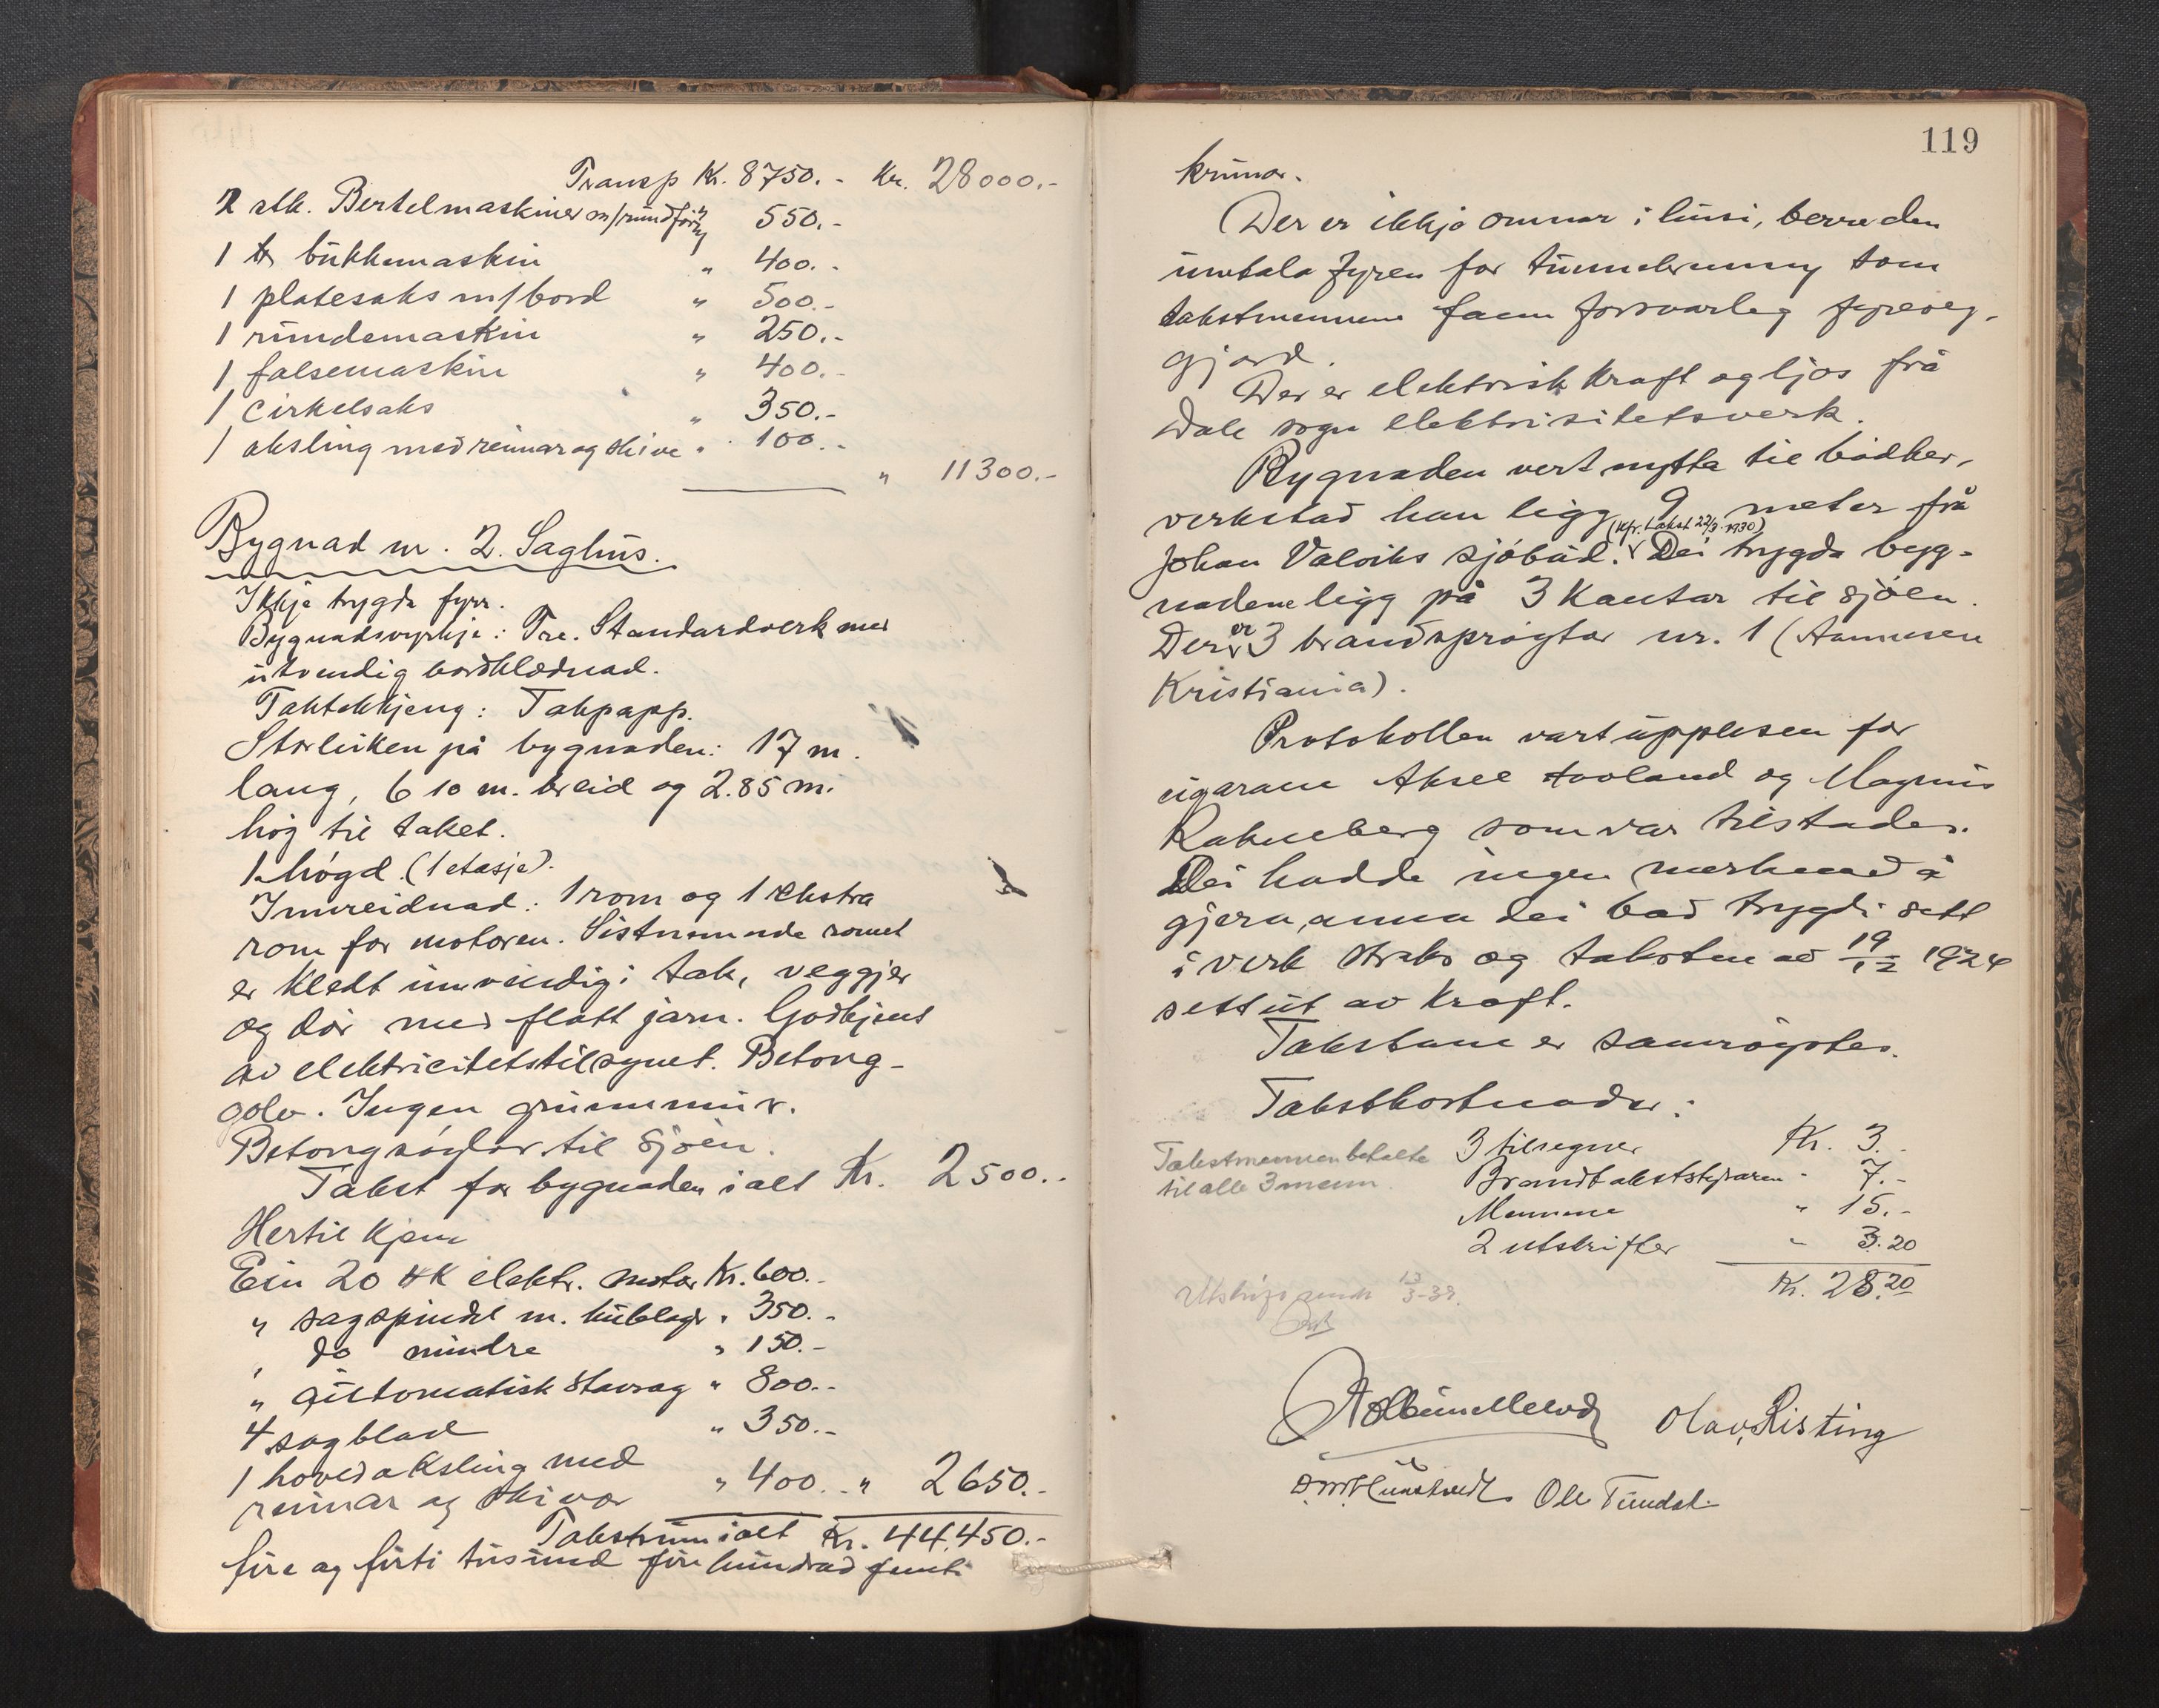 Transp Kr. 8750.- Kr. 28000.-
2 stk. Bertelmaskiner m/rundföring " 550.-
1 bukkemaskin " 400.-
1 platesaks m/bord " 500.-
1 rundemaskin " 250.-
1 falsemaskin " 400.-
1 Cirkelsaks " 350.-
1 aksling med reimar og skive " 100.-
" 11300.-
Bygnad nr. 2. Saghus.
Ikkje trygda fyrr.
Bygnadsvyrkje: Tre. Standardverk med
utvendig bordklædnad.
Taktekkjeng: Takpapp.
Storleiken på bygnaden: 17 m.
lang, 6 10 m. breid og 2.85 m.
høg til taket.
1 høgd. (1 etasje).
Innreidnad: 1 rom og 1 ekstra
rom for motoren. Sistnemnde romet
er kledt innvendig i tak, veggjer
og dør med flatt jarn. Godkjent
av elektricitetstilsynet. Betong-
golv. Ingen grunnmur.
Betongsøylor til sjøen.
Takst for bygnaden ialt Kr. 2500.-
Hertil kjem
Ein 20 HK elektr. motor Kr. 600.-
" sagspindel m. kulelager " 350.-
" do mindre " 150.-
" automatisk stavsag " 800.-
4 sagblad " 350.-
1 hovedaksling med
reimar og skivor " 400.- " 2650.-
Takstsum ialt Kr. 44.450.-
fire og firti tusund fire hundrad femti
119
krunor.
Der er ikkje omnar i husi, berre den
umtala fyren for tunnebrenning som
takstmennene fann forsvarleg fyreseg-
gjord.
Der er elektrisk kraft og ljos frå
Dale sogn elektrisitetsverk.
Bygnaden vert nytta til bødker-
verkstad han ligg 9 meter frå
(Kfr. takst 22/3-1930)
Johan Valviks sjøbud. Dei trygda byg-
nadene ligg på 3 kantar til sjøen.
Der er 3 brandsprøytor nr. 1 (Aamussen
Kristiania).
Protokollen vart upplesen for
eigarane Aksel Hovland og Magnus
Rakneberg som var tilstades.
Dei hadde ingen merknad å
gjera, anna dei bad trygdi sett
i verk straks og taksten av 19/12 1924
sett ut av kraft.
Takstane er samrøystes.
Takstkostnader:
Takstmennen betalte
til alle 3 menn.
3 tilsegner Kr. 3.-
Brandtakststyraren " 7.-
Mennene " 15.-
2 utskrifter " 3.20
Kr. 28.20
Utskrift sendt 13/3-32.
Olav Risting
Ole Tundal